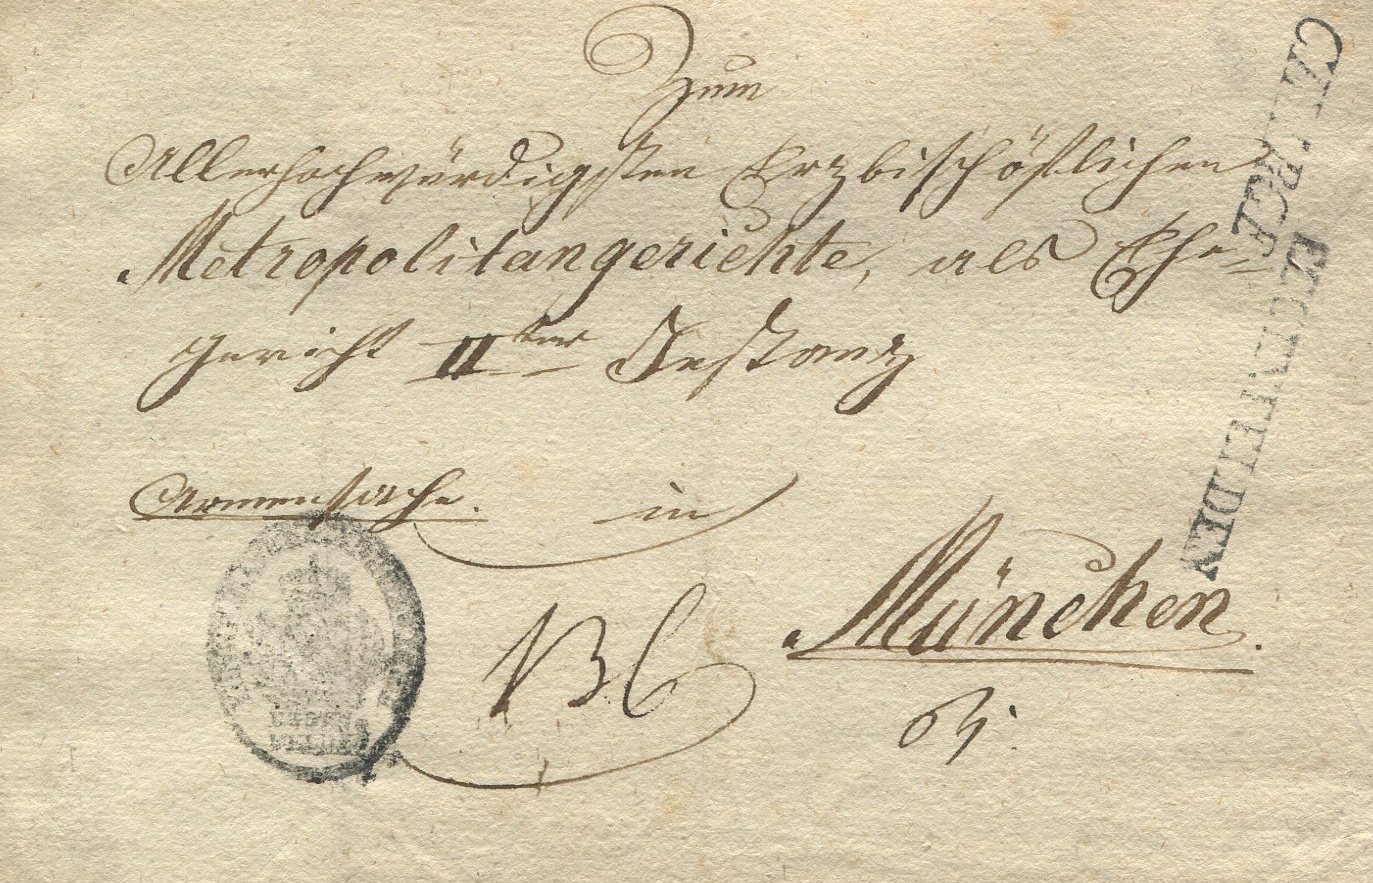 Zum
Allerhochwürdigsten Erzbischöflichen
Metropolitangerichte, als Ehe=
gericht IIter Instanz
Armensache. in
München.